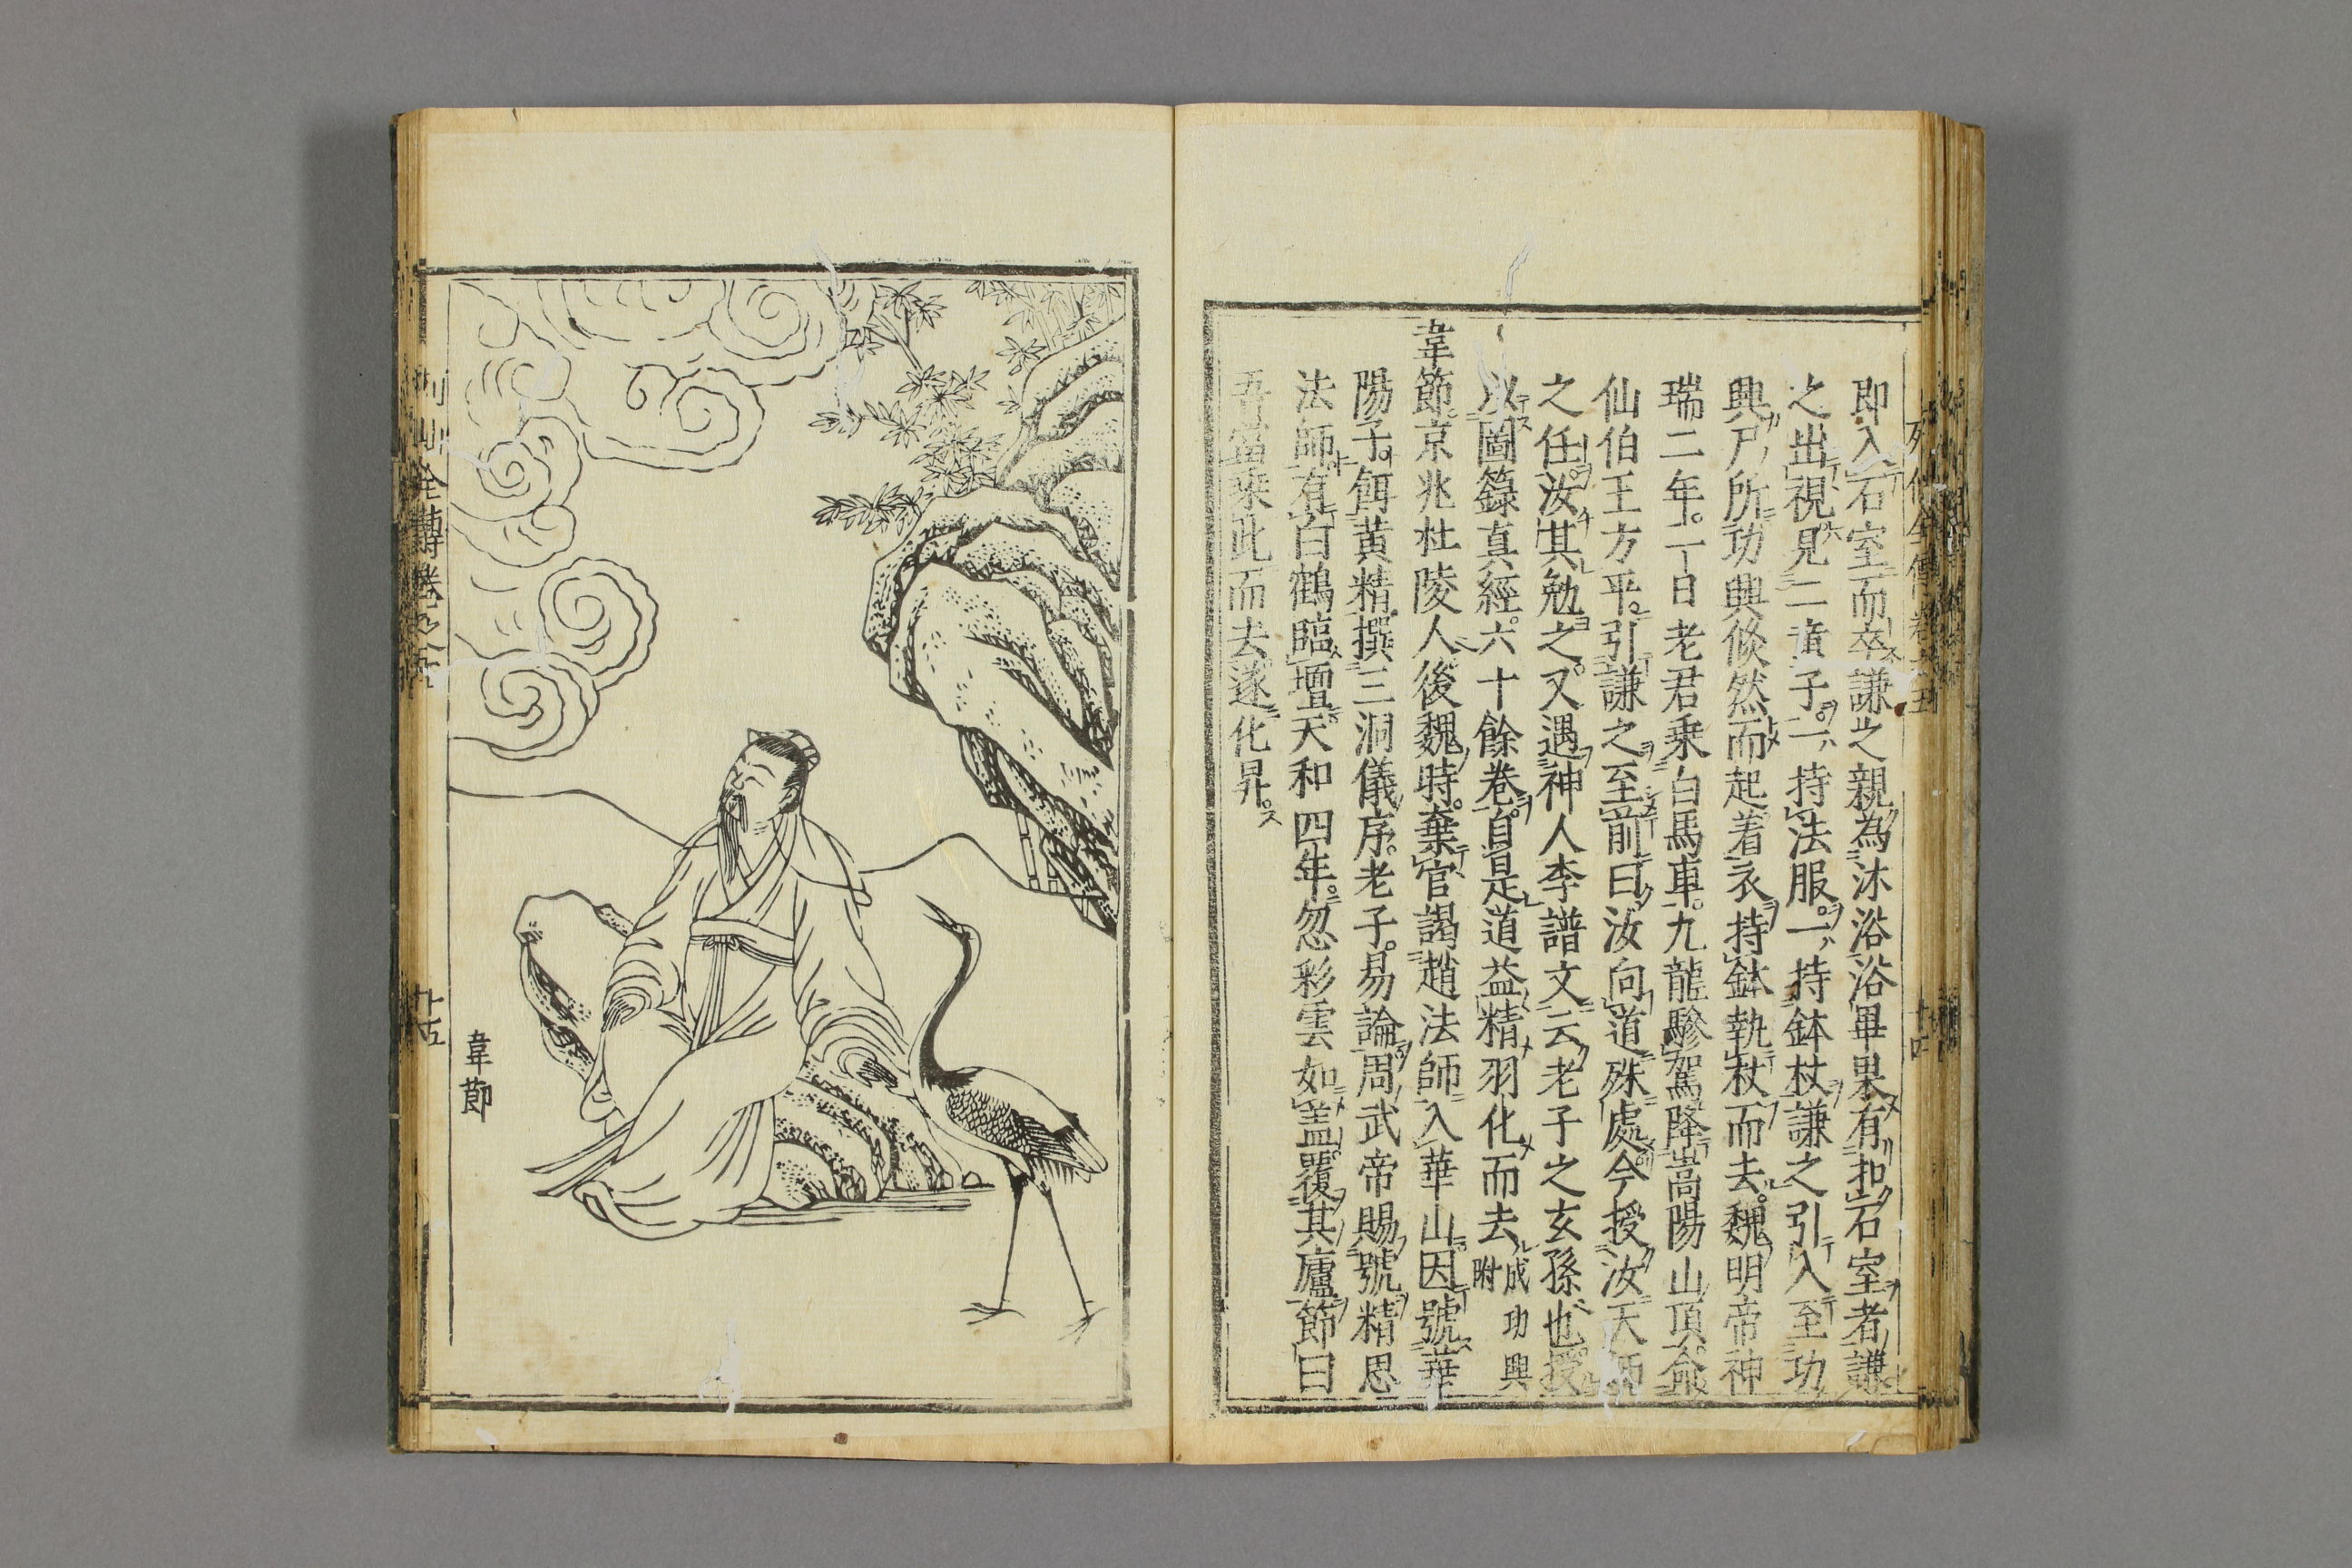 列仙全傳卷之五
十四
即入石室而卒謙之親為沐浴浴畢果有扣石室者謙
之出視見二童子一持法服一持鉢杖謙之引入至功
興尸所功興倏然而起着衣持鉢執杖而去魏明帝神
瑞二年一日老君乗白馬車九龍驂駕降嵩陽山頂命
仙伯王方平引謙之至前曰汝向道殊處今授汝天師
之任汝其勉之又遇神人李譜文云老子之玄孫也授
以圖籙真經六十餘巻自是道益精羽化而去成功興附
韋節京兆杜陵人後魏時棄官謁趙法師入華山因號華
陽子餌黄精撰三洞儀序老子易論周武帝賜號精思
法師有白鶴臨壇天和四年忽彩雲如盖覆其廬節曰
吾當乗此而去遂化昇
韋節
列仙全傳卷之五
十五